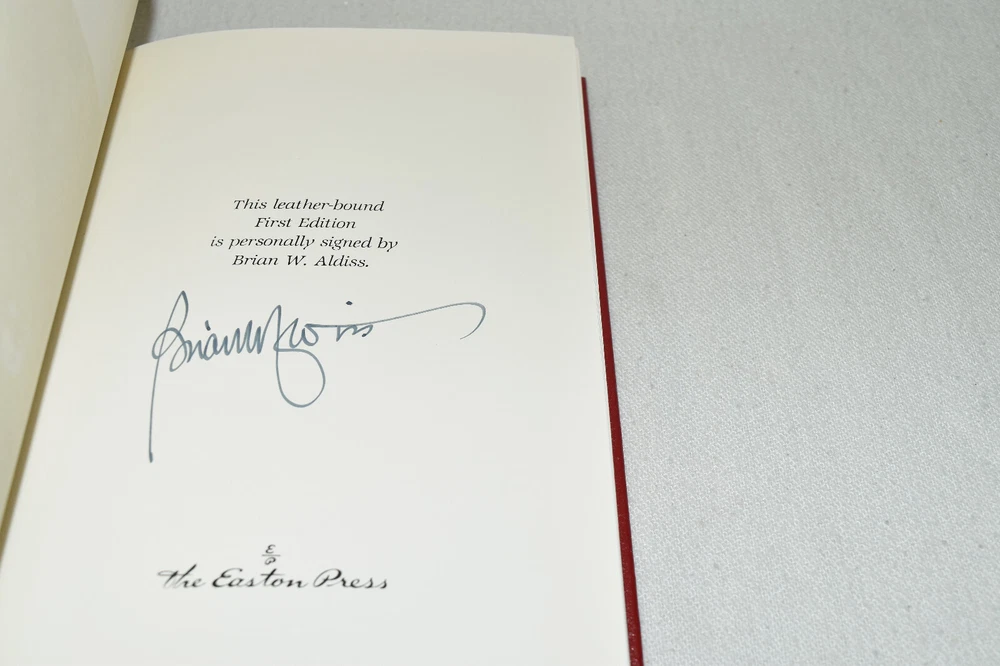 This leather-bound
First Edition
is personally signed by
Brian W. Aldiss.
Brian W. Aldiss
E
P
the Easton Press